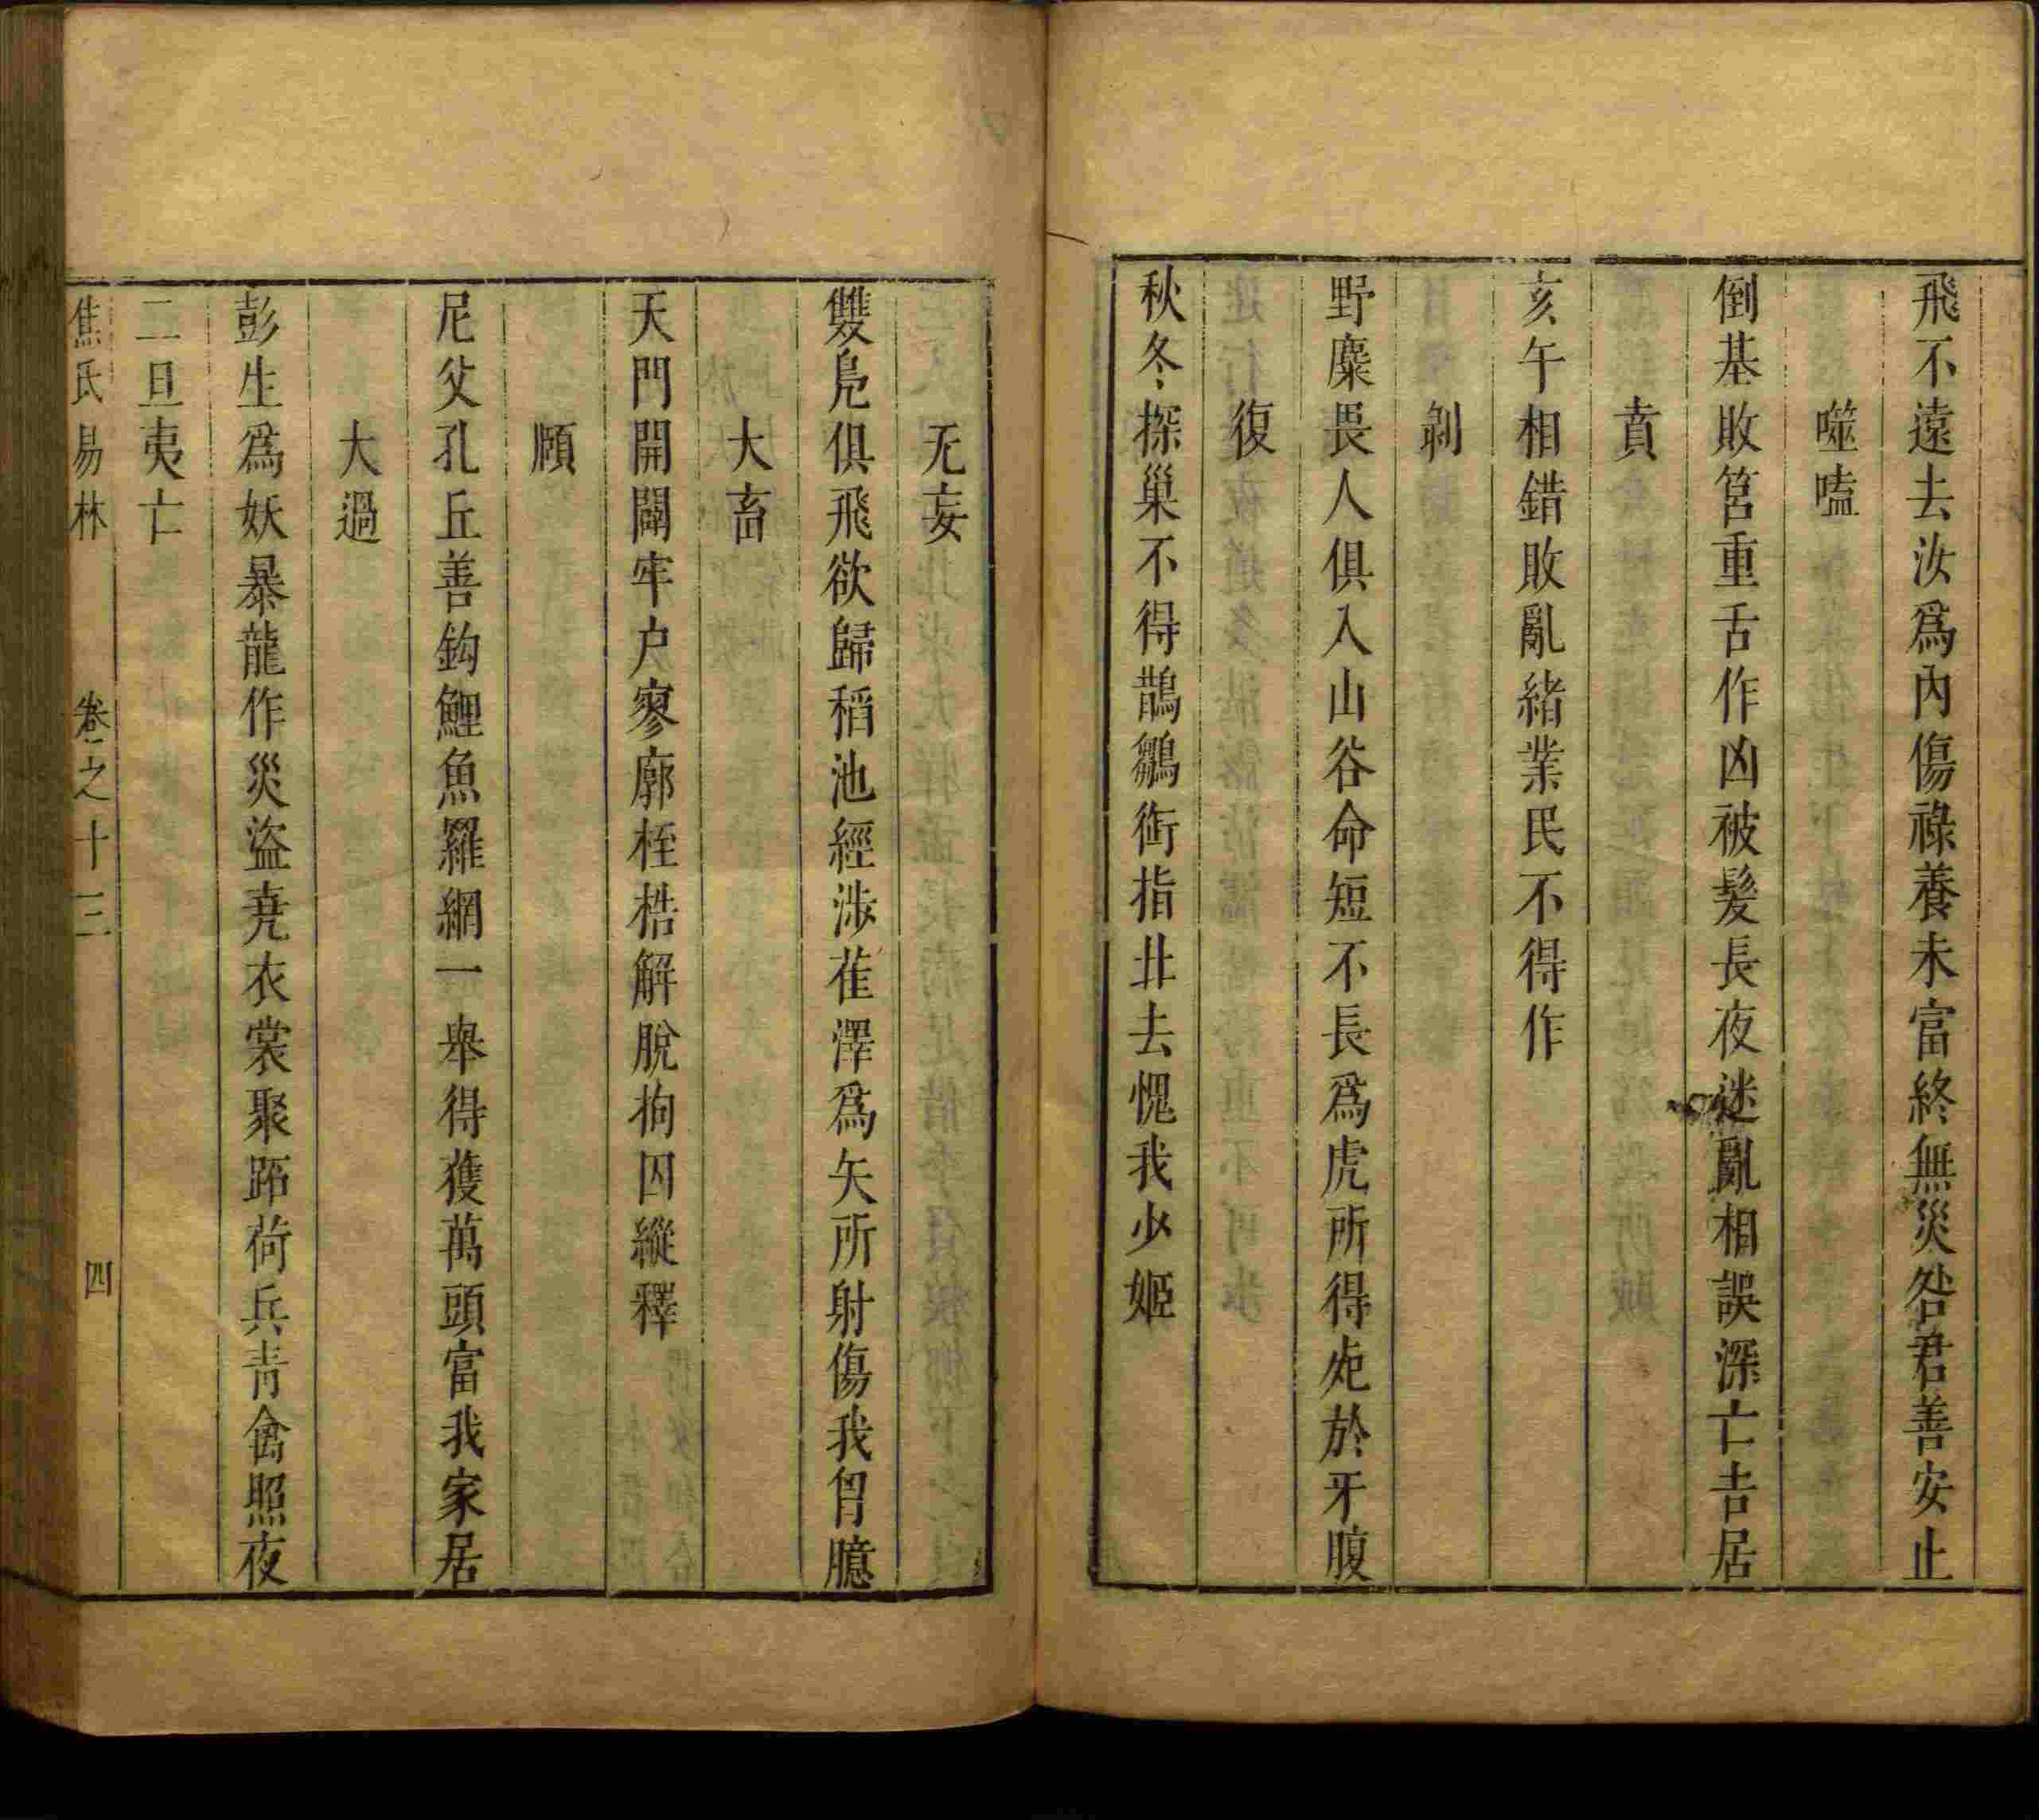 飛不遠去汝爲內傷祿養未富終無災咎君善安止
噬嗑
倒基敗筥重舌作凶被髮長夜迷亂相誤深亡吉居
賁
亥午相錯敗亂緒業民不得作
剝
野麋畏人俱入山谷命短不長爲虎所得死於牙腹
復
秋冬探巢不得鵲鶵銜指北去愧我少姬
无妄
雙鳧俱飛欲歸稻池經涉萑澤爲矢所射傷我胷臆
大畜
天門開闢牢户寥廓桎梏解脫拘囚縱釋
頤
尼父孔丘善鈎鯉魚羅網一舉得獲萬頭富我家居
大過
彭生爲妖暴龍作災盜堯衣裳聚跖荷兵青禽照夜
二旦夷亡
焦氏易林 卷之十三 四